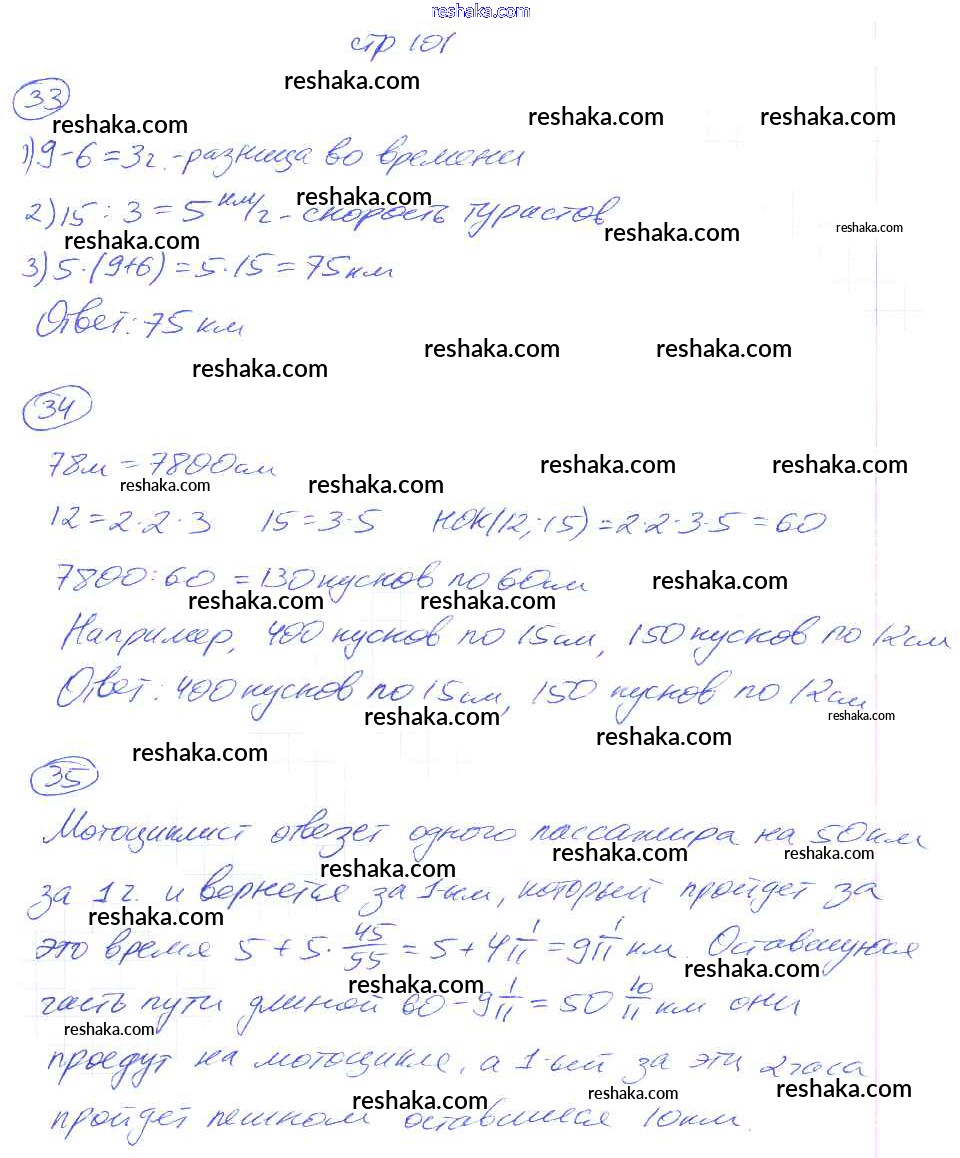 reshaka.com
стр 101
reshaka.com
33
reshaka.com reshaka.com reshaka.com
1) 9-6=3г.-разница во времени
reshaka.com
2) 15:3=5 км/г - скорость туристов
reshaka.com reshaka.com reshaka.com
3) 5·(9+6)=5·15=75км
Ответ: 75 км
reshaka.com reshaka.com
reshaka.com
34
78м=7800см
reshaka.com reshaka.com
reshaka.com reshaka.com
12=2·2·3 15=3·5 НОК(12;15)=2·2·3·5=60
7800:60=130 кусков по 60см
reshaka.com
reshaka.com reshaka.com
Например, 400 кусков по 15см, 150 кусков по 12см
Ответ: 400 кусков по 15см, 150 кусков по 12см
reshaka.com reshaka.com
reshaka.com
reshaka.com
35
Мотоциклист отвезет одного пассажира на 50км
reshaka.com reshaka.com
reshaka.com
за 1г. и вернется за 1-ым, который пройдет за
reshaka.com
это время 5+5·45/55=5+4 1/11=9 1/11 км. Оставшуюся
reshaka.com
reshaka.com
часть пути длиной 60-9 1/11=50 10/11 км они
reshaka.com
проедут на мотоцикле, а 1-ый за эти 2 часа
reshaka.com reshaka.com reshaka.com
пройдет пешком оставшиеся 10км.